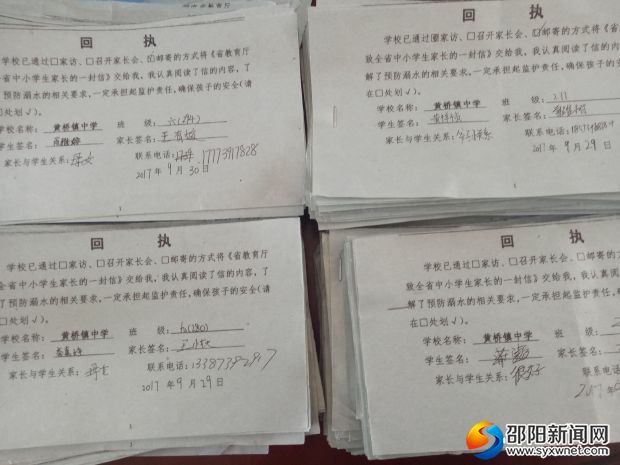 回 执
学校已通过☐家访、☐召开家长会、☑邮寄的方式将《省教育厅
致全省中小学生家长的一封信》交给我,我认真阅读了信的内容,了
解了预防溺水的相关要求,一定承担起监护责任,确保孩子的安全(请
在☐处划√)。
学校名称: 黄桥镇中学 班 级:
学生签名: 家长签名:
家长与学生关系: 联系电话: 17773917828
2017 年 9 月 30 日
1
回 执
学校已通过☐家访、☐召开家长会、☑邮寄的方式将《省教育
致全省中小学生家长的一封信》交给我,我认真阅读了信的内容
解了预防溺水的相关要求,一定承担起监护责任,确保孩子的安
在☐处划√)。
学校名称: 黄桥镇中学 班 级: 211
学生签名: 家长签名:
家长与学生关系: 联系电话:
2017 年 9 月 29 日
1
回 执
学校已通过☐家访、☐召开家长会、☐邮寄的方式将《省教育厅
致全省中小学生家长的一封信》交给我,我认真阅读了信的内容,了
了预防溺水的相关要求,一定承担起监护责任,确保孩子的安全(请
☐处划√)。
学校名称: 黄桥镇中学 班 级:
学生签名: 家长签名:
家长与学生关系: 联系电话: 13387392917
2017 年 9 月 29 日
1
回 执
学校已通过☐家访、☐召开家长会、☐邮寄的方式
致全省中小学生家长的一封信》交给我,我认真阅读
解了预防溺水的相关要求,一定承担起监护责任,确
在☐处划√)。
学校名称: 黄桥镇中学 班 级:
学生签名: 家长签名
家长与学生关系: 联系电
2017 年
邵阳新闻网
www.syxwnet.com